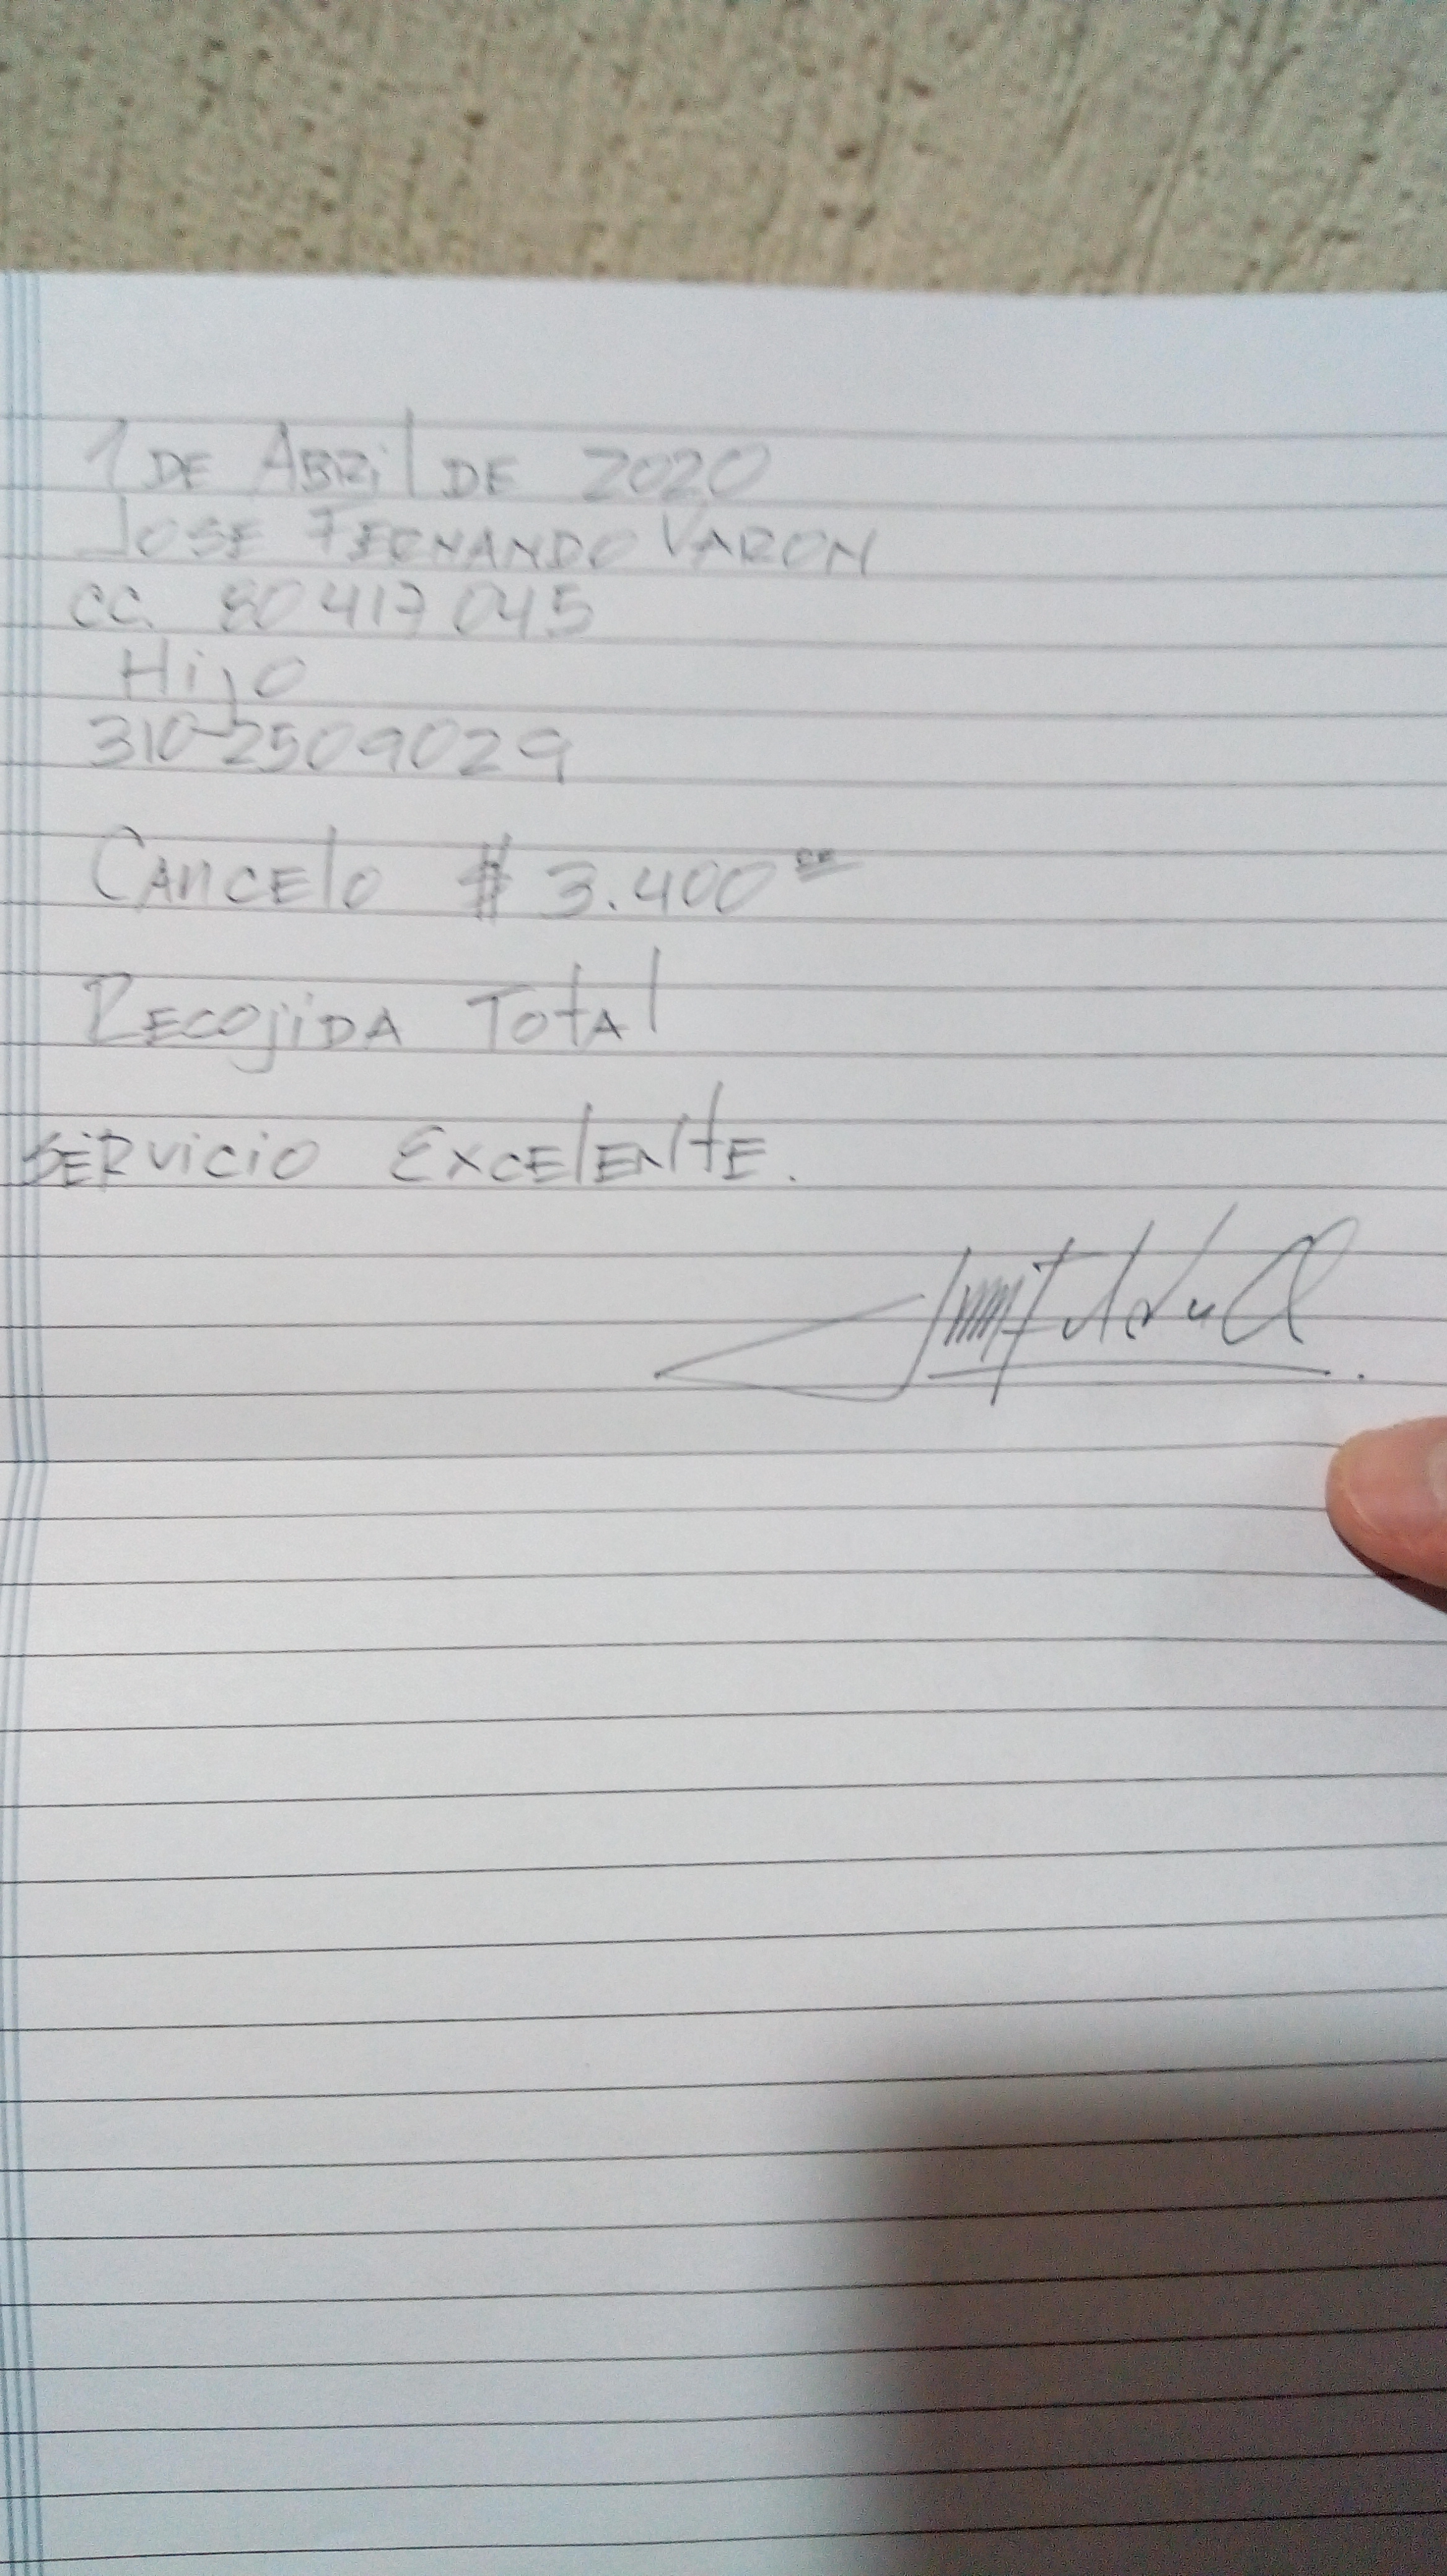 1 DE ABRIL DE 2020
JOSE FERNANDO VARON
CC. 80 417 045
Hijo
310-2509029
CANCELO $ 3.400 00
RECOJIDA TOTAL
SERVICIO EXCELENTE.